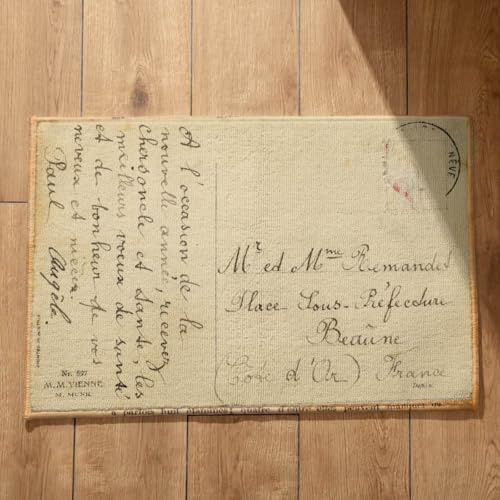 A l'occasion de la
nouvelle année, recevez
chers oncle et Tante, les
meilleurs voeux de santé
et de bonheur de vos
neveux et nièces.
Paul Angèle.
Nr. 597
M. M. VIENNE
M. MUNK
NÈVE
Mr et Mme Remandet
Place Sous-Préfecture
Beaune
(Côte d'Or) France